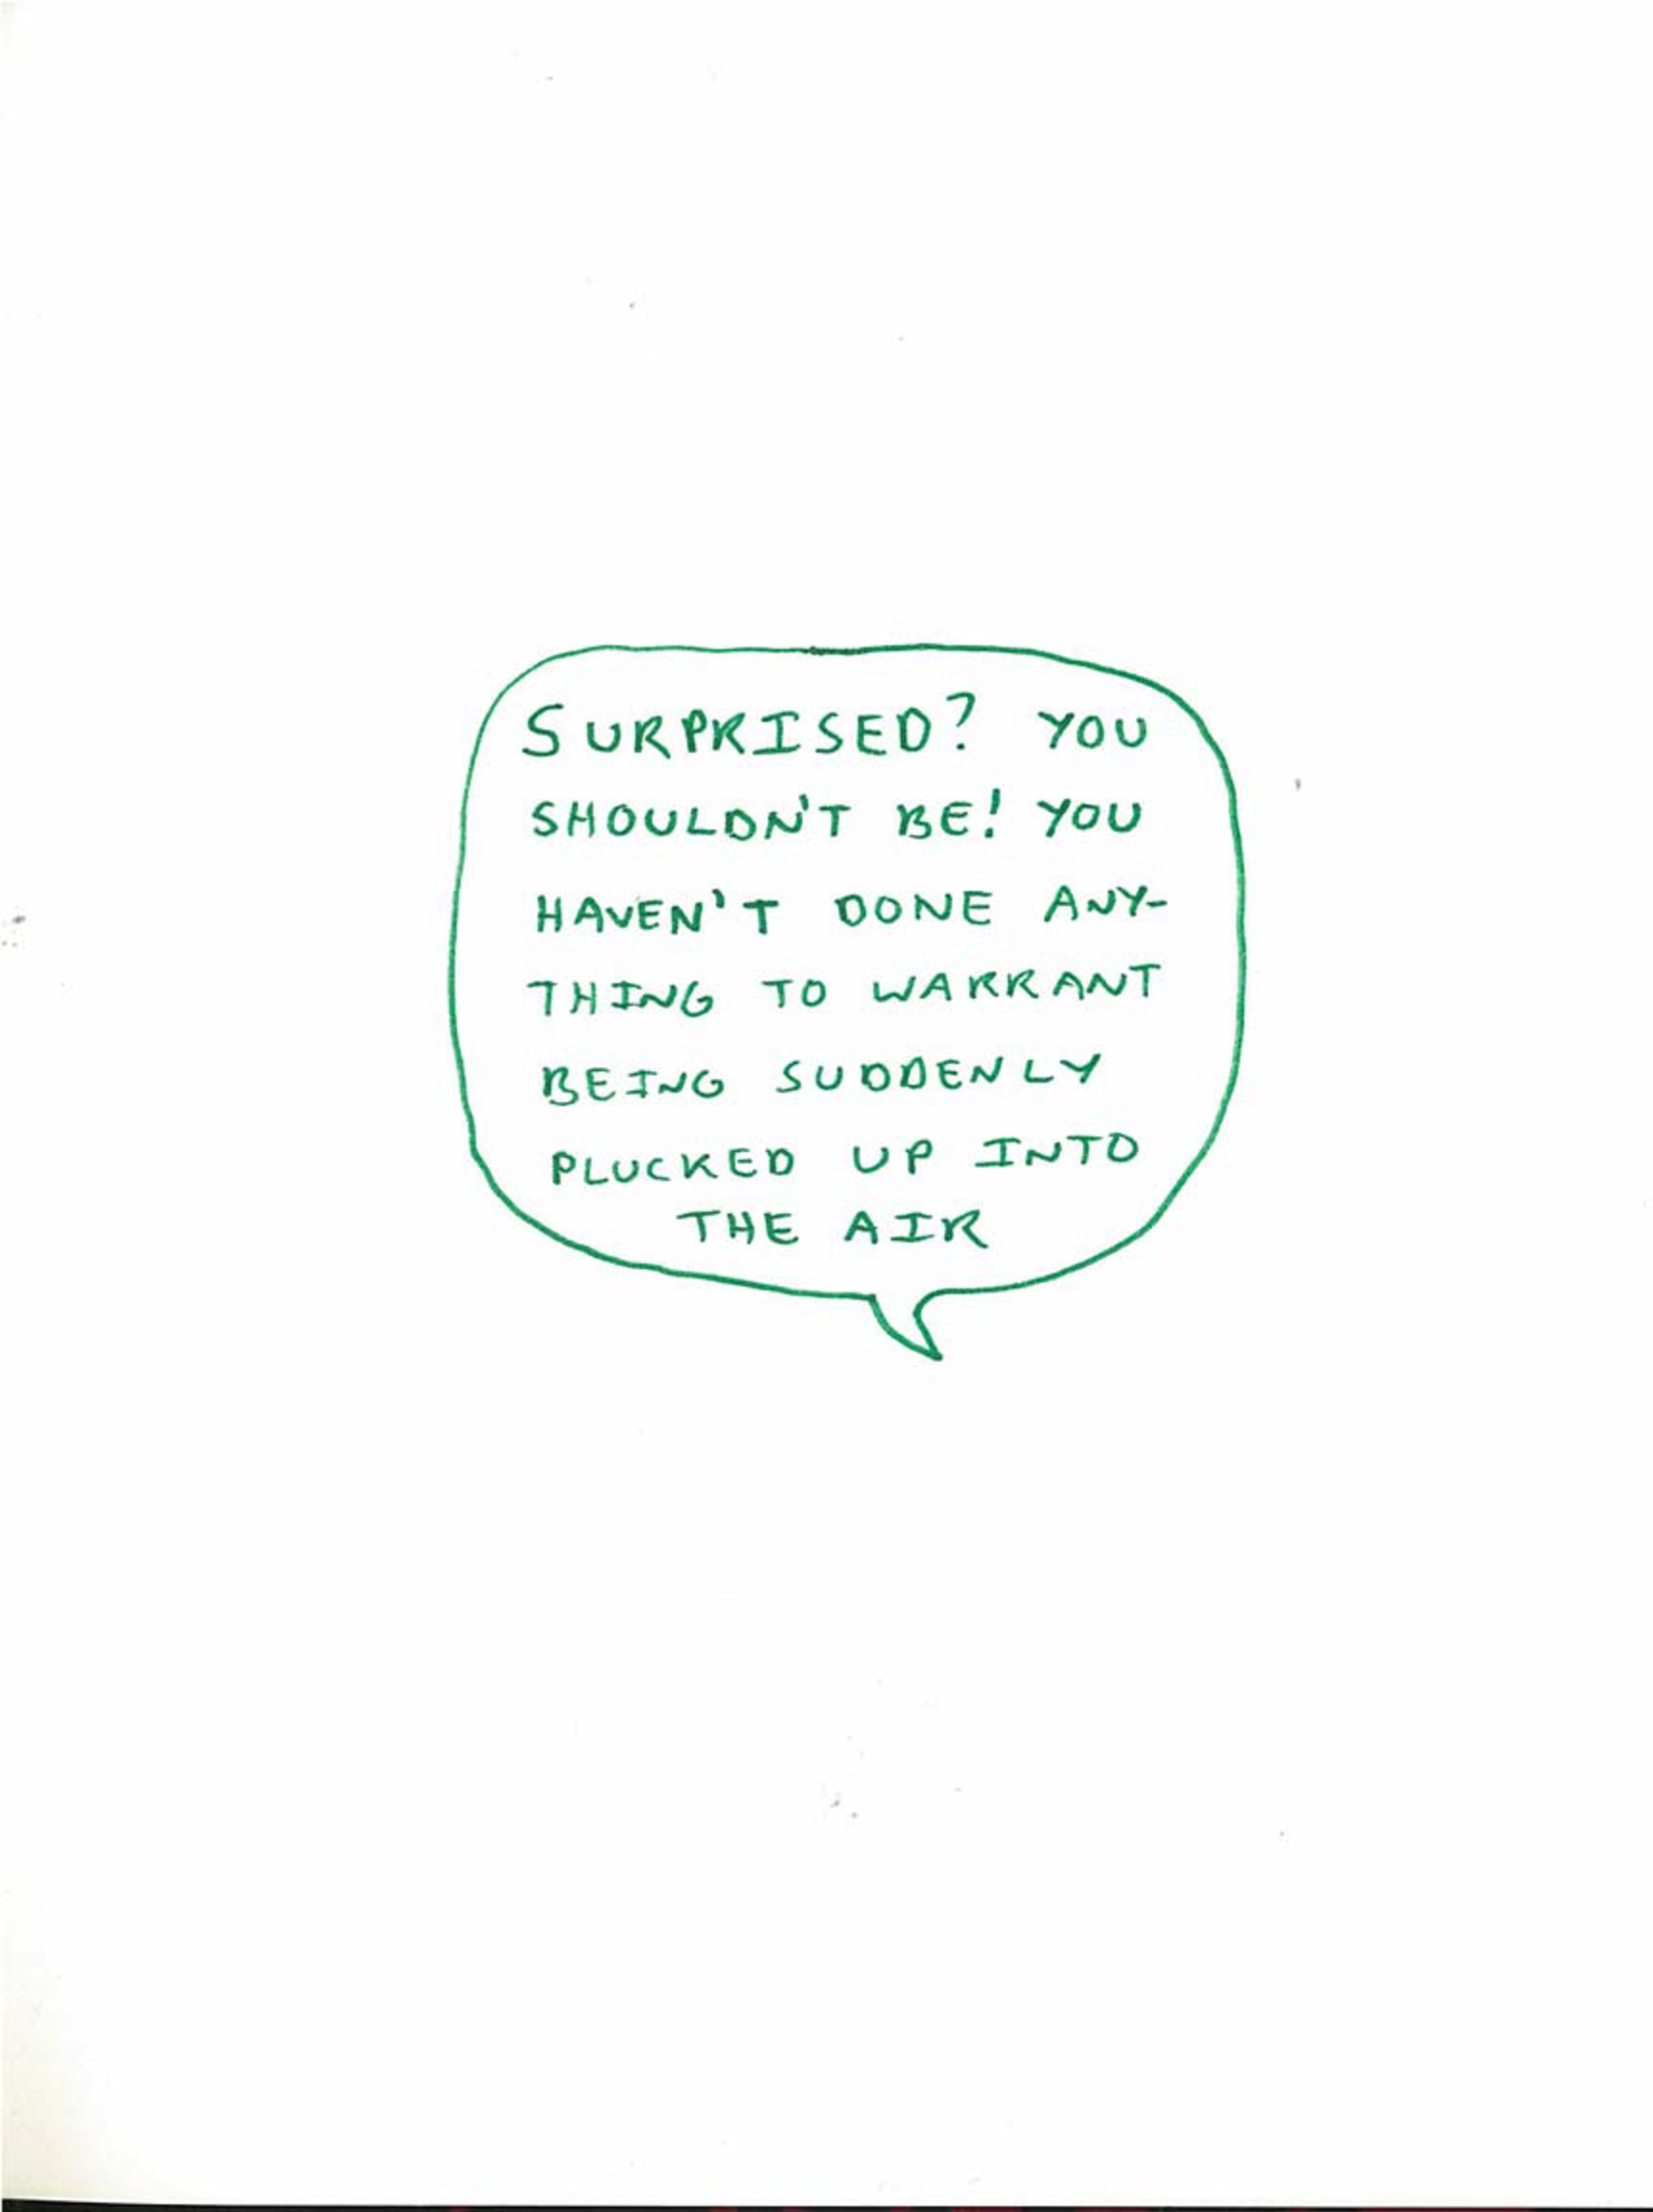 SURPRISED? YOU
SHOULDN'T BE! YOU
HAVEN'T DONE ANY-
THING TO WARRANT
BEING SUDDENLY
PLUCKED UP INTO
THE AIR